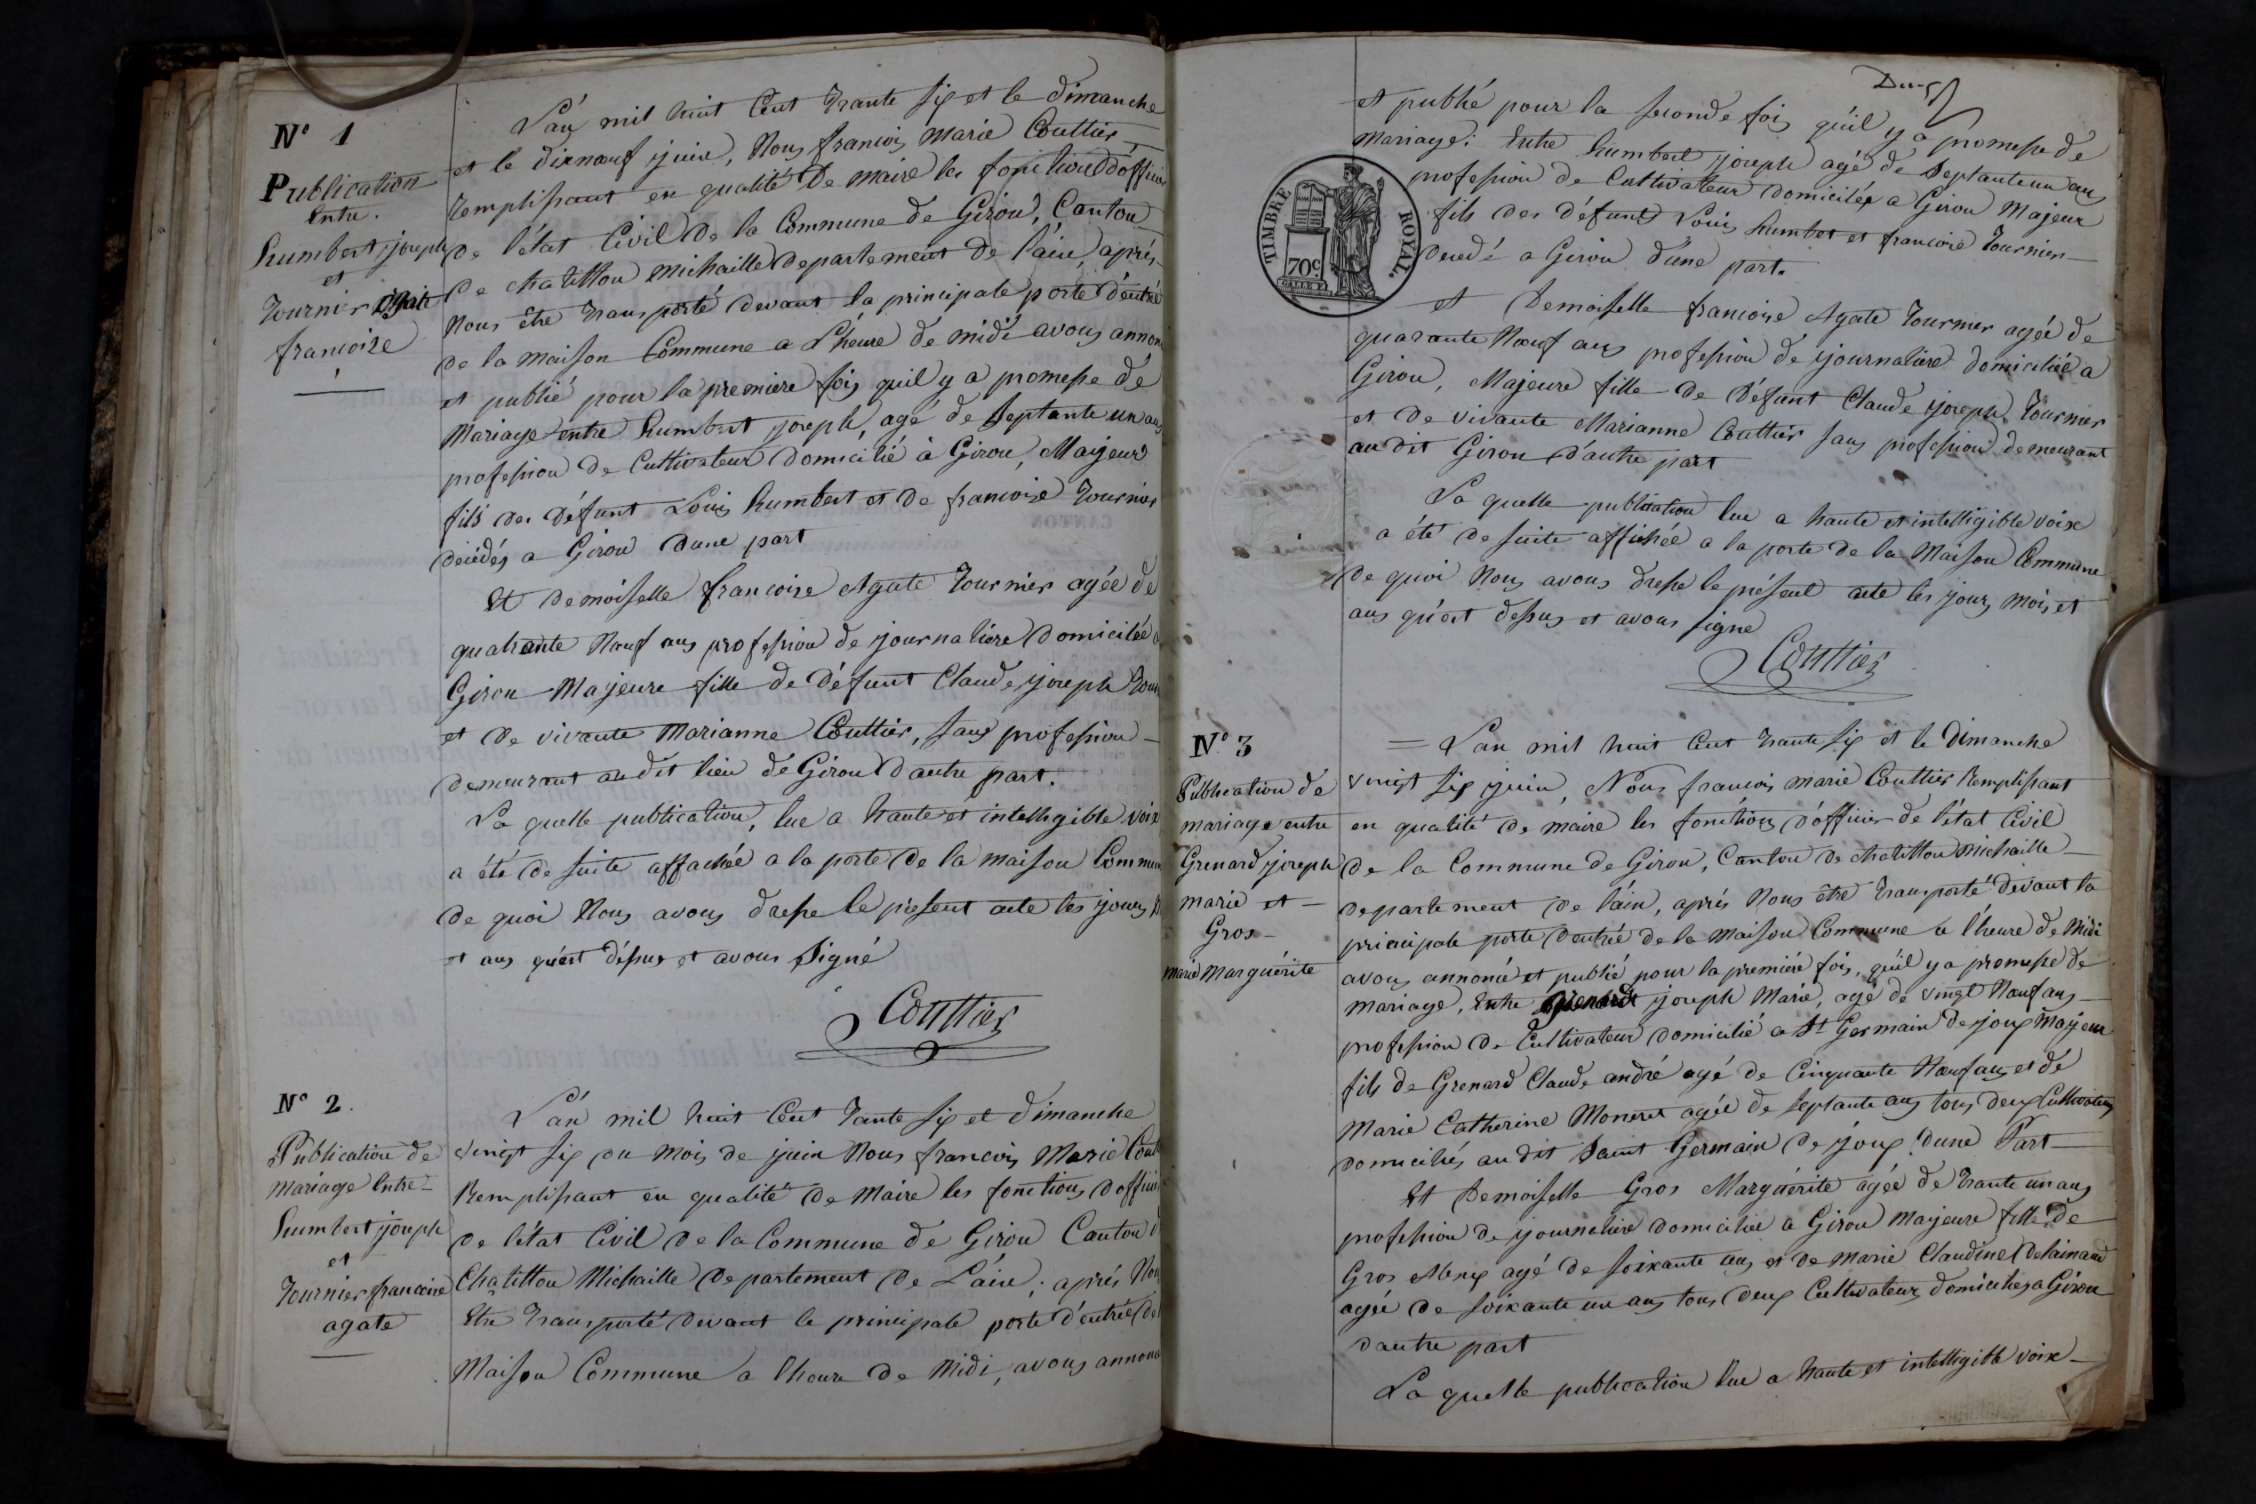 N° 1
Publication
Entre.
humbert joseph
et
Tournier Agate
francoise
L'an mil huit Cent trante six et le dimanche
et le dixnœuf juin, Nous francois Marie Couttier
remplissant en qualité de maire les fonctions d'officier
de l'état Civil de la Commune de Giron, Canton
de chatillon michaille departement de l'ain, après
Nous être transporté devant la principale porte d'entrée
de la maison Commune a L'heure de midi avons annon
et publié pour la premiere fois quil y a promesse de
Mariage entre humbert joseph, agé de septante un ans
profession de Cultivateur domicilié à Giron, Majeur
fils des défunt Louis humbert et de francoise Tournier
décédés a Giron dune part
Et demoiselle francoise Agate Tournier agée de
quatrante Nœuf ans profession de journaliere domiciliée a
Giron Majeure fille de défunt Claude joseph Tour
et de vivante Marianne Couttier, sans profession
demeurant audit lieu de Giron d'autre part.
La quelle publication, lue a haute et intelligible voix
a été de suite affachée a la porte de la maison Commun
de quoi Nous avons dresse le present acte les jours
et ans qu'est dessus et avons Signé
Couttier
N° 2.
Publication de
mariage Entre
humbert joseph
et
Tournier francoise
agate
L'an mil huit Cent tante six et dimanche
vingt six du mois de juin Nous francois Marie Cout
Remplissant en qualité de Maire les fonctions d'offici
de l'état Civil de la Commune de Giron Canton d
Chatillon Michaille departement de L'ain, après Nou
Etre transporté devant la principale porte d'entrée de
Maison Commune a lheure de Midi, avons annonc
et publié pour la seconde fois qu'il y a promesse de
Mariage: Entre humbert joseph agé de Septante un ans
profession de Cultivateur domiciliée a Giron Majeur
fils des défunts Louis humbert et francoise Tournier
decedé a Giron d'une part.
TIMBRE ROYAL.
70c
et Demoiselle francoise Agate Tournier agée de
quarante Nœuf ans profession de journaliere domiciliée a
Giron, Majeure fille de Défunt Claude joseph Tournier
et de vivante Marianne Couttier sans profession demeurant
audit Giron d'autre part
La quelle publication lue a haute et intelligible voix
a été de suite affichée a la porte de la Maison Commune
de quoi Nous avons dresse le présent acte les jours, mois, et
ans qu'est dessus et avons signe
Couttier
N° 3
Publication de
mariage entre
Grenard joseph
marie et
Gros
marie Marguérite
L'an mil huit Cent trante six et le Dimanche
vingt six juin, Nous francois marie Couttier Remplissant
en qualité de maire les fonctions d'officier de l'état Civil
de la Commune de Giron, Canton de chatillon michaille
departement de l'ain, après Nous être transporté devant la
principale porte d'entrée de la Maison Commune a l'heure de Midi
avons annoncé et publié pour la premiére fois, qu'il y a promesse de
mariage, Entre Grenard joseph Marie, agé de vingt Nœuf ans
profession de Cultivateur domicilié a St Germain de joux Majeur
fils de Grenard Claude andré agé de Cinquante Nœuf ans et de
Marie Catherine Moneret agée de septante ans tous deux Cultivateurs
domiciliés au dit Saint Germain de joux dune Part
Et Demoiselle Gros Marguérite agée de trante un ans
profession de journaliere domiciliée a Giron Majeure fille de
Gros Alexis agé de soixante ans et de marie Claudine Delainaud
agée de soixante un ans tous deux Cultivateurs domiciliés a Giron
d'autre part
La quelle publication lue a haute et intelligible voix